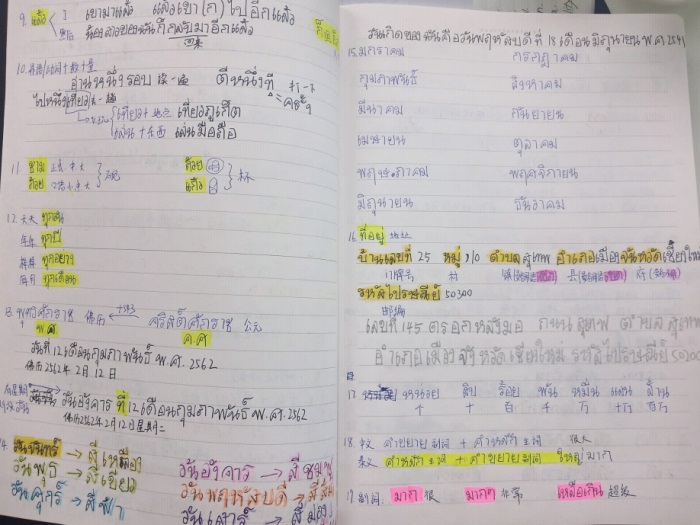 9. แล้ว I เขามาแล้ว แล้วเขา(ก)ไปอีกแล้ว
น้องสาวของฉันกลับมาอีกแล้ว
อ่านหนึ่งรอบ ตีหนึ่งที
ครั้ง
เที่ยว + 地点 เที่ยวภูเก็ต
เล่น + 东西 เล่นมือถือ
11. ชาม
ถ้วย
ถ้วย
แก้ว
12. 天天 ทุกวัน
年年 ทุกปี
样样 ทุกอย่าง
每月 ทุกเดือน
พุทธศักราช 佛历 คริสต์ศักราช 公元
พ.ศ. ค.ศ
วันที่ 12 เดือนกุมภาพันธ์ พ.ศ. 2562
佛历2562年 2月 12 日
วันอังคาร ที่ 12 เดือนกุมภาพันธ์ พ.ศ. 2562
佛历2562年2月12日星期二
14. วันจันทร์ → สีเหลือง วันอังคาร → สีชมพู
วันพุธ → สีเขียว วันพฤหัสบดี → สีส้ม
วันศุกร์ → สีฟ้า วันเสาร์ → สีม่วง
วันเกิดของฉันคือวันพฤหัสบดีที่ 18 เดือนมิถุนายน พ.ศ. 2541
15. มกราคม กรกฎาคม
กุมภาพันธ์ สิงหาคม
มีนาคม กันยายน
เมษายน ตุลาคม
พฤษภาคม พฤศจิกายน
มิถุนายน ธันวาคม
16. ที่อยู่ 地址
บ้านเลขที่ 25 หมู่ 10 ตำบลสุเทพ อำเภอเมือง จังหวัดเชียงใหม่
门牌号 村
รหัสไปรษณีย์ 50300
邮编
เลขที่ 145 ตรอกหลังมอ ถนนสุเทพ ตำบลสุเทพ
อำเภอเมือง จังหวัดเชียงใหม่ รหัสไปรษณีย์ 50200
17. หน่วย สิบ ร้อย พัน หมื่น แสน ล้าน
个 十 百 千 万 十万 百万
18. 中文 คำขยาย 副词 + คำหลัก 主词 很大
泰文 คำหลัก 主词 + คำขยาย 副词 ใหญ่มาก
19. 副词: มาก 很 มากๆ 非常 เหลือเกิน 超级